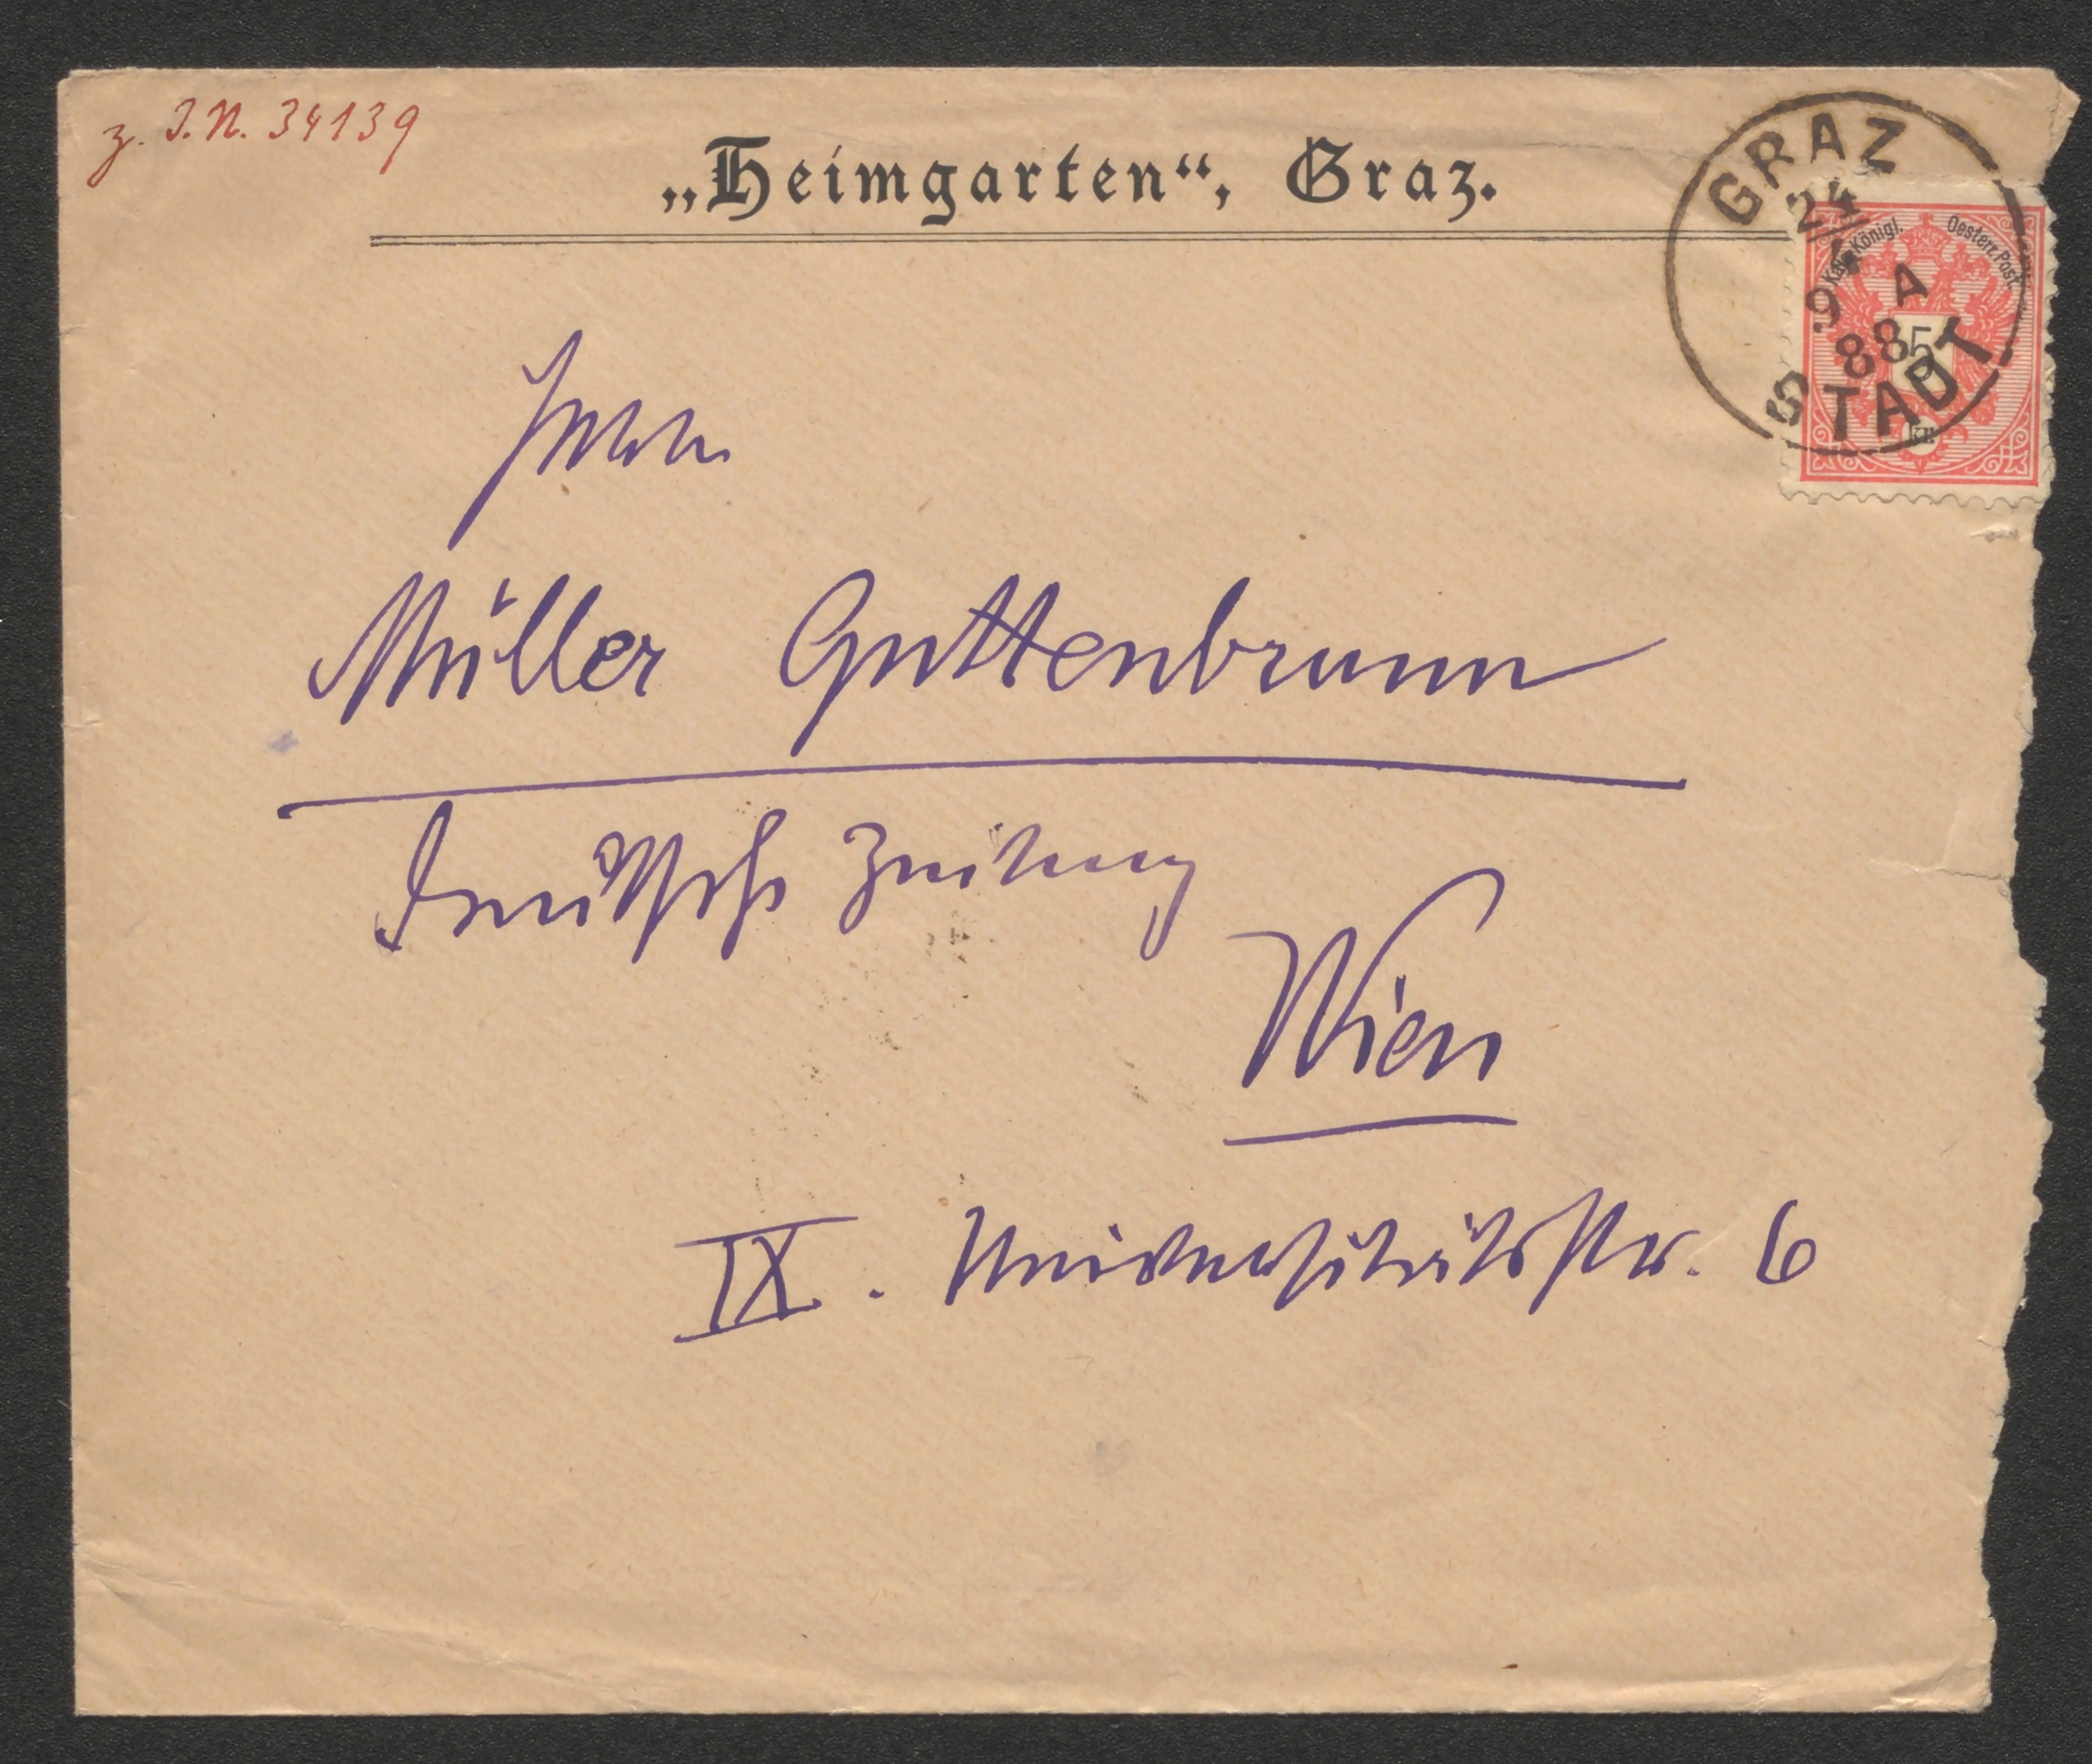 z. I.N. 34139
„Heimgarten“, Graz.
GRAZ
24
4
9 A
88
STADT
Kais. Königl. Oesterr. Post.
5
kr
Herrn
Müller Guttenbrunn
Deutsche Zeitung
Wien
IX. Universitätsstr. 6